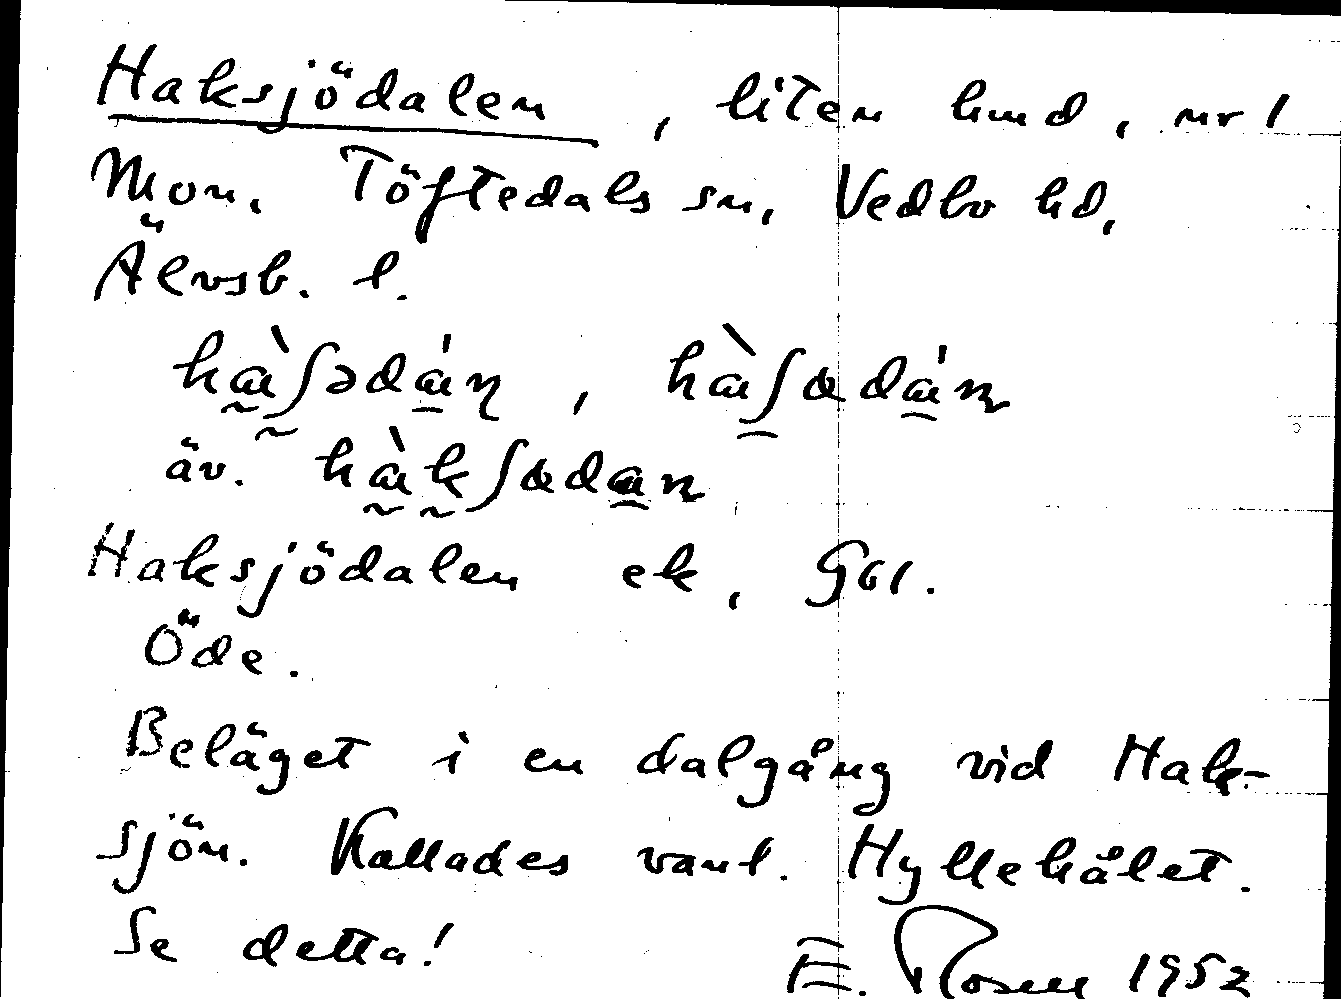 Haksjödalen, liten lhmd, nr 1
Mon. Töftedals sn, Vedbo hd,
Älvsb. l.
hàʃədán, hàʃadán
äv. hàkʃadan
Haksjödalen ek, Gsl.
Öde.
Beläget i en dalgång vid Hak-
sjön. Kallades vanl. Hyllehålet.
Se detta! E. Rosell 1952